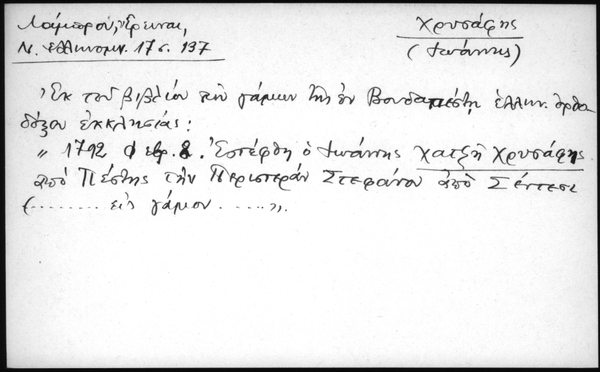 Λάμπρου, Ἔρευναι,
Ν. Ἑλληνομν. 17 σ. 197
Χρυσάφης
(Ἰωάννης)
Ἐκ τοῦ βιβλίου τῶν γάμων τῆς ἐν Βουδαπέστῃ ἑλλην. ὀρθο
δόξου ἐκκλησίας:
" 1792 φεβρ. 2. Ἐστέφθη ὁ Ἰωάννης Χατζῆ Χρυσάφης
ἀπὸ Πέστης τὴν Περιστερὰν Στεφάνου ἀπὸ Σέντεσι
(........ εἰς γάμον .....".